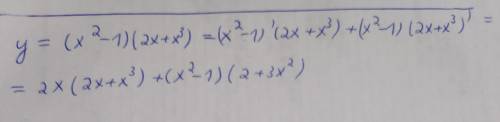 y = (x²-1)(2x+x³) = (x²-1)'(2x+x³)+(x²-1)(2x+x³)' =
= 2x(2x+x³)+(x²-1)(2+3x²)